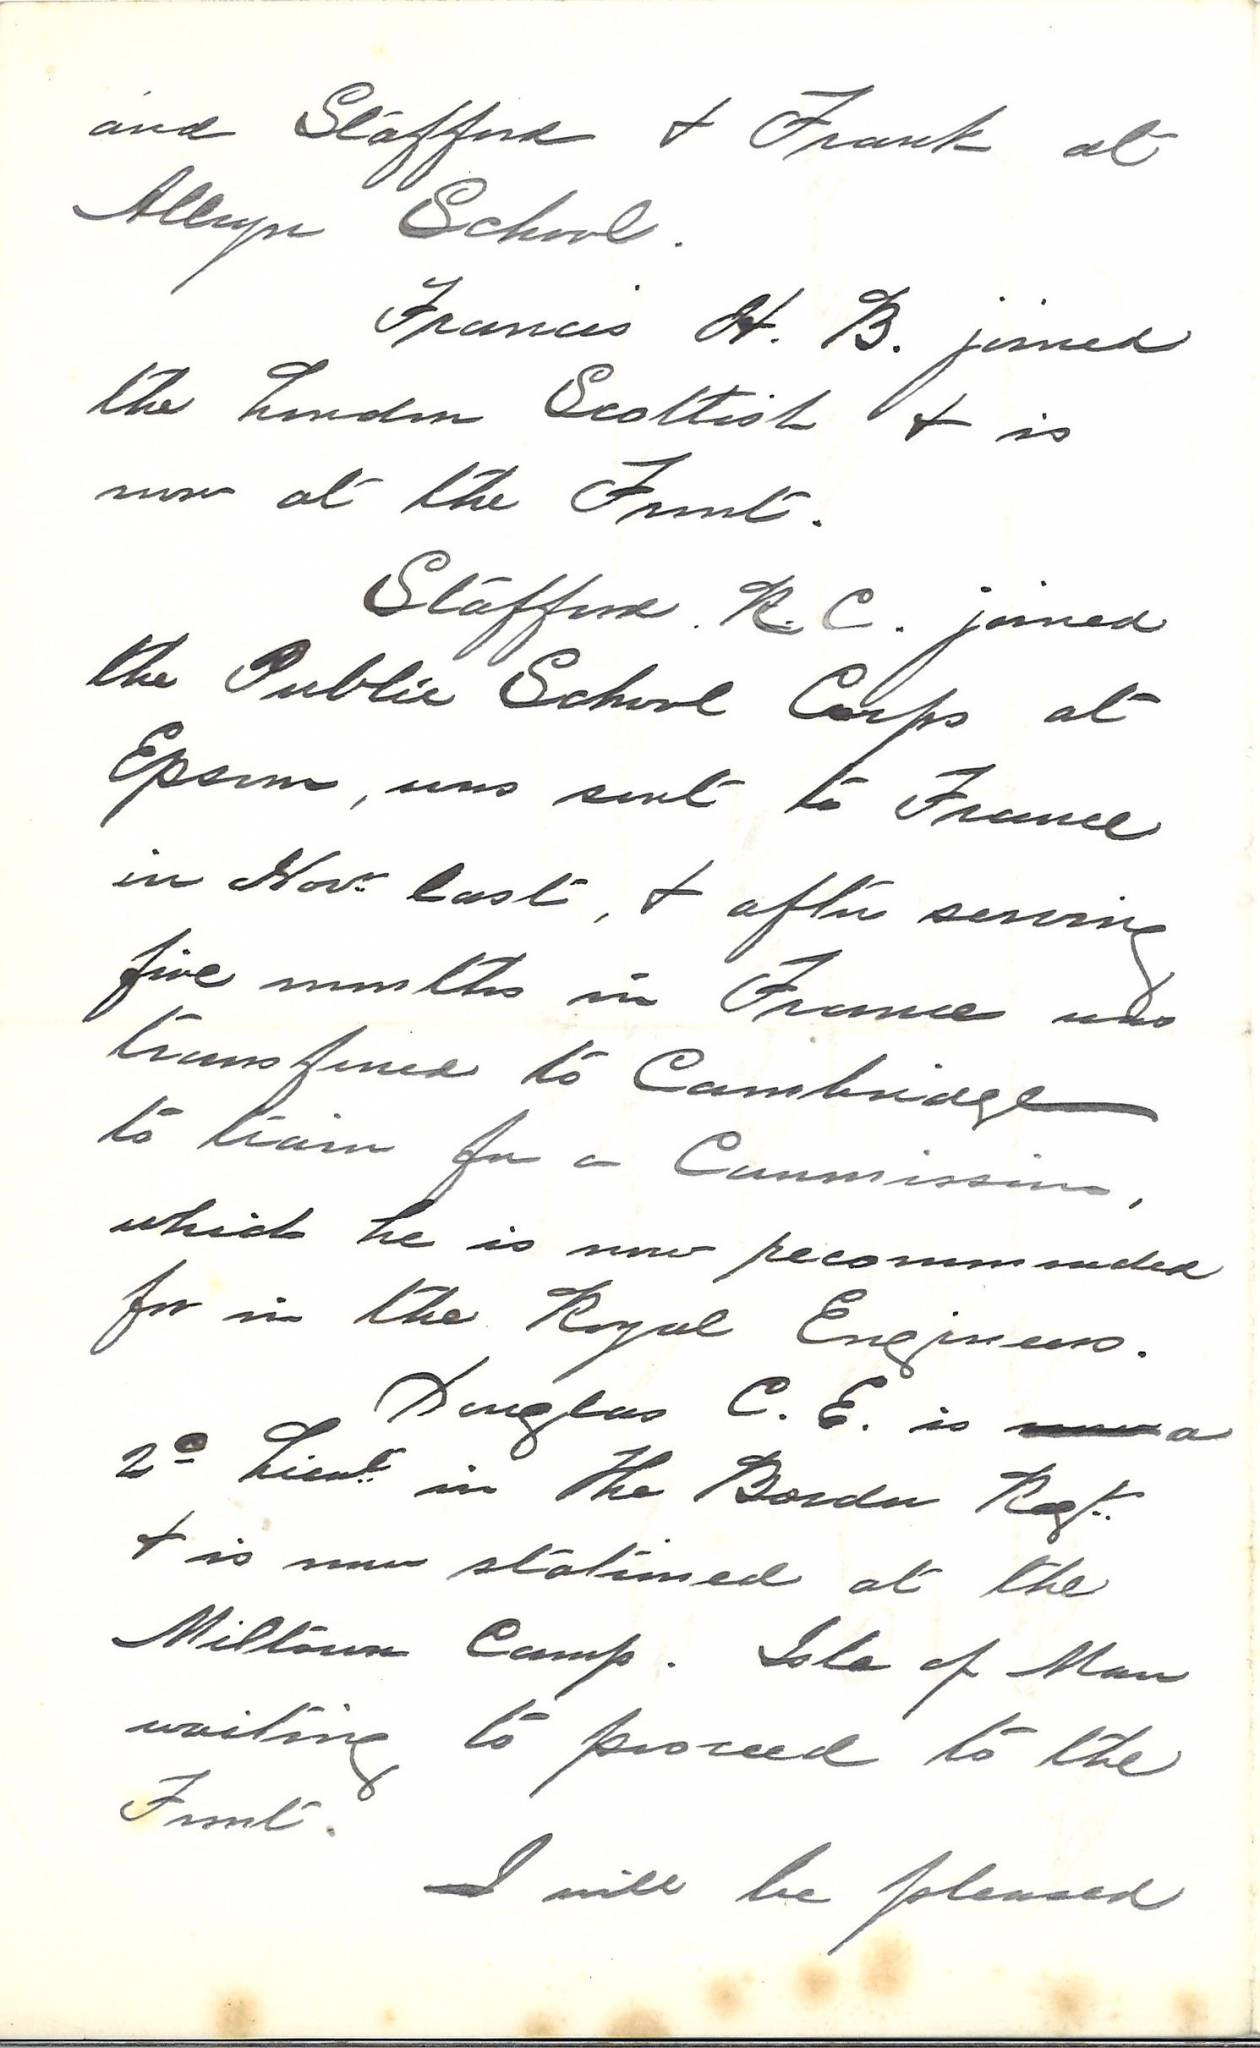 and Stafford & Frank at
Alleyn School.
Francis H. B. joined
the London Scottish & is
now at the Front.
Stafford. R. C. joined
the Public School Corps at
Epsom, was sent to France
in Novr. last, & after serving
five months in France was
transferred to Cambridge
to train for a Commission,
which he is now recommended
for in the Royal Engineers.
Douglas C. E. is now a
2d Lieut. in the Border Regt.
& is now stationed at the
Milltown Camp. Isle of Man
waiting to proceed to the
Front.
I will be pleased